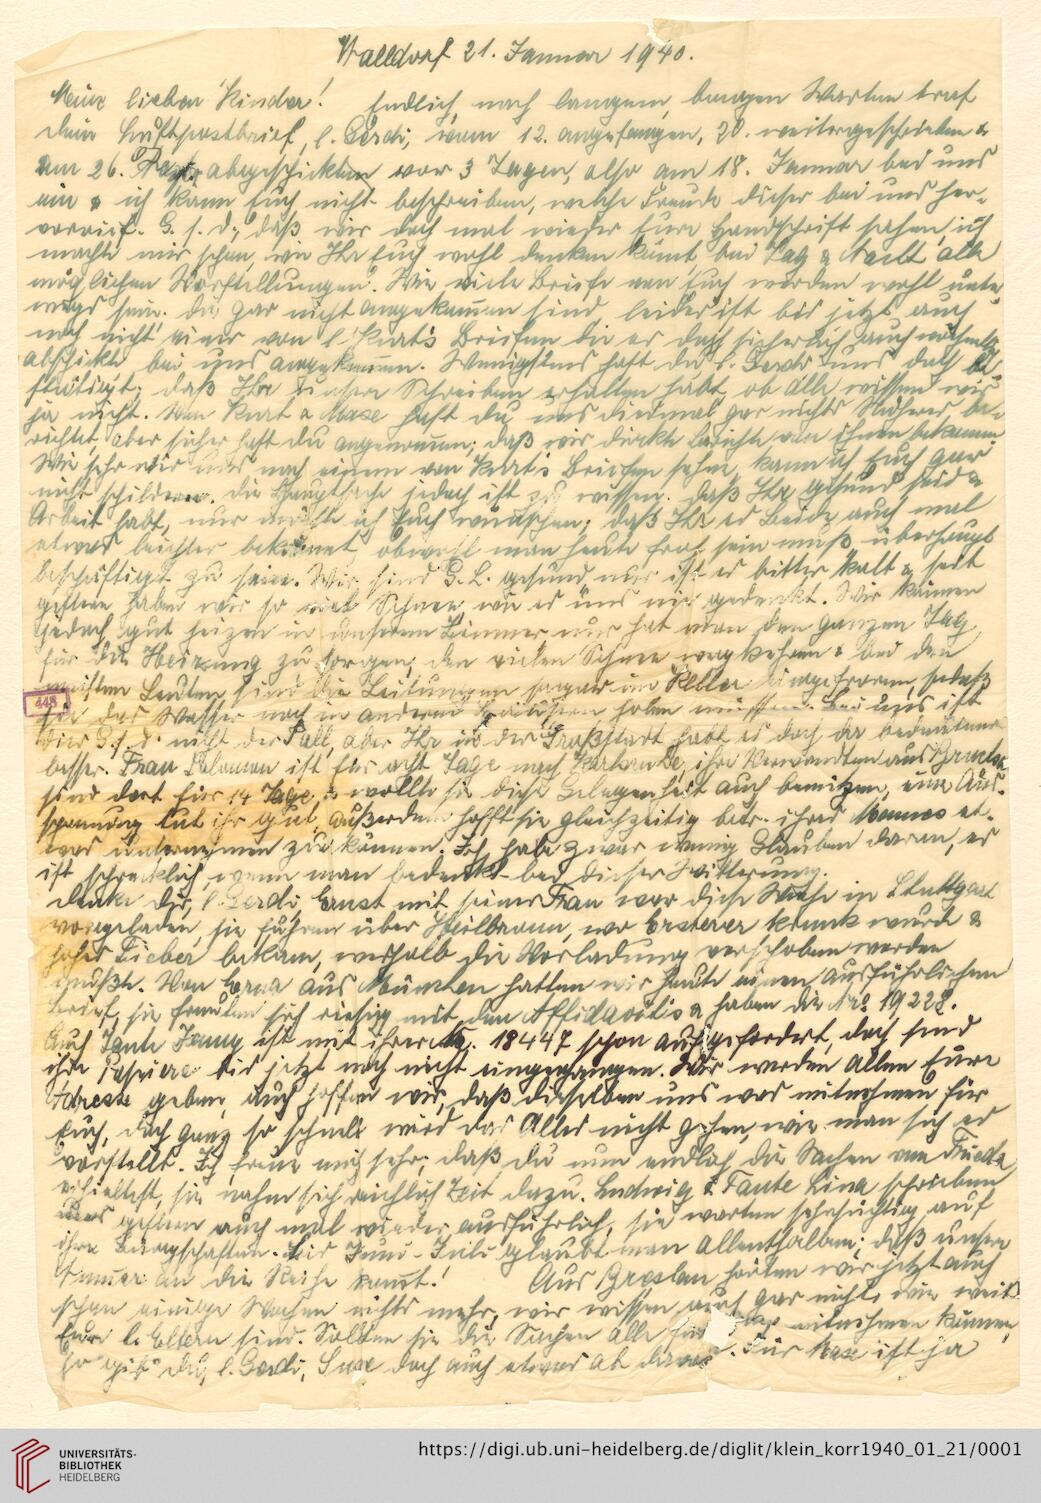 Walldorf 21. Januar 1940.
Meine lieben Kinder! Endlich, nach langem, bangen Warten traf
dein Luftpostbrief, l. Gerdi, vom 12. angefangen, 20. weitergeschrieben &
am 26. abgeschickten, vor 3 Tagen, also am 18. Januar bei uns
ein & ich kann Euch nicht beschreiben, welche Freude dieser bei uns her-
vorrief. G. s. d., daß wir doch mal wieder Eure Handschrift sahen, ich
machte mir schon, wie Ihr Euch wohl denken könnt, bei Tag & Nacht alle
möglichen Vorstellungen. Wie viele Briefe von Euch werden wohl unter-
wegs sein, die gar nicht angekommen sind, leider ist bis jetzt auch
noch nicht einer von l. Kurt's Briefen die er doch sicherlich auch
abschickte bei uns angekommen. Wenigstens hast du l. Gerdi uns doch be-
stätigt, daß Ihr unsere Schreiben erhalten habt, ob alle wissen wir
ja nicht. Von Kurt & Maxe hast du uns diesmal gar nichts Näheres be-
richtet, aber sicher hast du angenommen, daß wir direkte Berichte von ihnen bekommen.
Wie sehr wir uns nach einem von Kurt's Briefen sehnen, kann ich Euch gar
nicht schildern. Die Hauptsache jedoch ist zu wissen, daß Ihr gesund seid &
Arbeit habt, nur möchte ich Euch wünschen, daß Ihr es Beide auch mal
etwas leichter bekommt, obwohl man heute froh sein muß überhaupt
beschäftigt zu sein. Wir sind G. L. gesund, nur ist es bitter kalt & seit
gestern haben wir so viel Schnee, wie es uns nie gedenkt. Wir können
jedoch gut heizen in unserem Zimmer, nur hat man den ganzen Tag
für die Heizung zu sorgen, den vielen Schnee wegkehren & bei den
meisten Leuten sind die Leitungen sogar im Keller eingefroren, sodaß
sie das Wasser noch in anderen Häusern holen müssen. Bei uns ist
dies G. s. d. nicht der Fall, aber Ihr in der Großstadt habt es doch da bedeutend
besser. Frau Salomon ist für acht Tage nach Karlsruhe, ihre Verwandten aus
sind dort für 14 Tage, & wollte sie diese Gelegenheit auch benützen, eine Aus-
spannung tut ihr gut, außerdem hofft sie gleichzeitig betr. ihres Mannes et-
was unternehmen zu können. Ich habe zwar wenig Glauben daran, es
ist schrecklich, wenn man bedenkt bei dieser Witterung.
Denke dir, l. Gerdi, Ernst mit seiner Frau war diese Woche in Stuttgart
vorgeladen, sie fuhren über Heilbronn, wo Ersterer krank wurde &
hohes Fieber bekam, weshalb die Vorladung verschoben werden
mußte. Von Erna aus München hatten wir heute einen ausführlichen
Brief, sie freuten sich riesig mit den Affidavitis & haben die Nro. 19228.
Auch Tante Jenny ist mit ihrer No. 18447 schon aufgefordert, doch sind
ihre Papiere bis jetzt noch nicht eingegangen. Wir werden Allen Eure
Adresse geben, auch hoffen wir, daß dieselben uns was mitnehmen für
Euch, doch ganz so schnell wird das Alles nicht gehen, wie man sich es
vorstellt. Ich freue mich sehr, daß du nun endlich die Sachen von Frieda
erhieltest, sie nahm sich reichlich Zeit dazu. Ludwig & Tante Lina schrieben
uns gestern auch mal wieder ausführlich, sie warten sehnsüchtig auf
ihre Bürgschaften. Bis Juni-Juli glaubt man allenthalben, daß unsere
Nummer an die Reihe kommt! Aus Breslau hörten wir jetzt auch
schon einige Wochen nichts mehr, wir wissen auch gar nicht, wie weit
Eure l. Eltern sind. Sollten sie die Sachen alle für mitnehmen können,
so gib du, l. Gerdi, Suse doch auch etwas ab davon. Für Maxe ist ja
448
UNIVERSITÄTS-
BIBLIOTHEK
HEIDELBERG
https://digi.ub.uni-heidelberg.de/diglit/klein_korr1940_01_21/0001